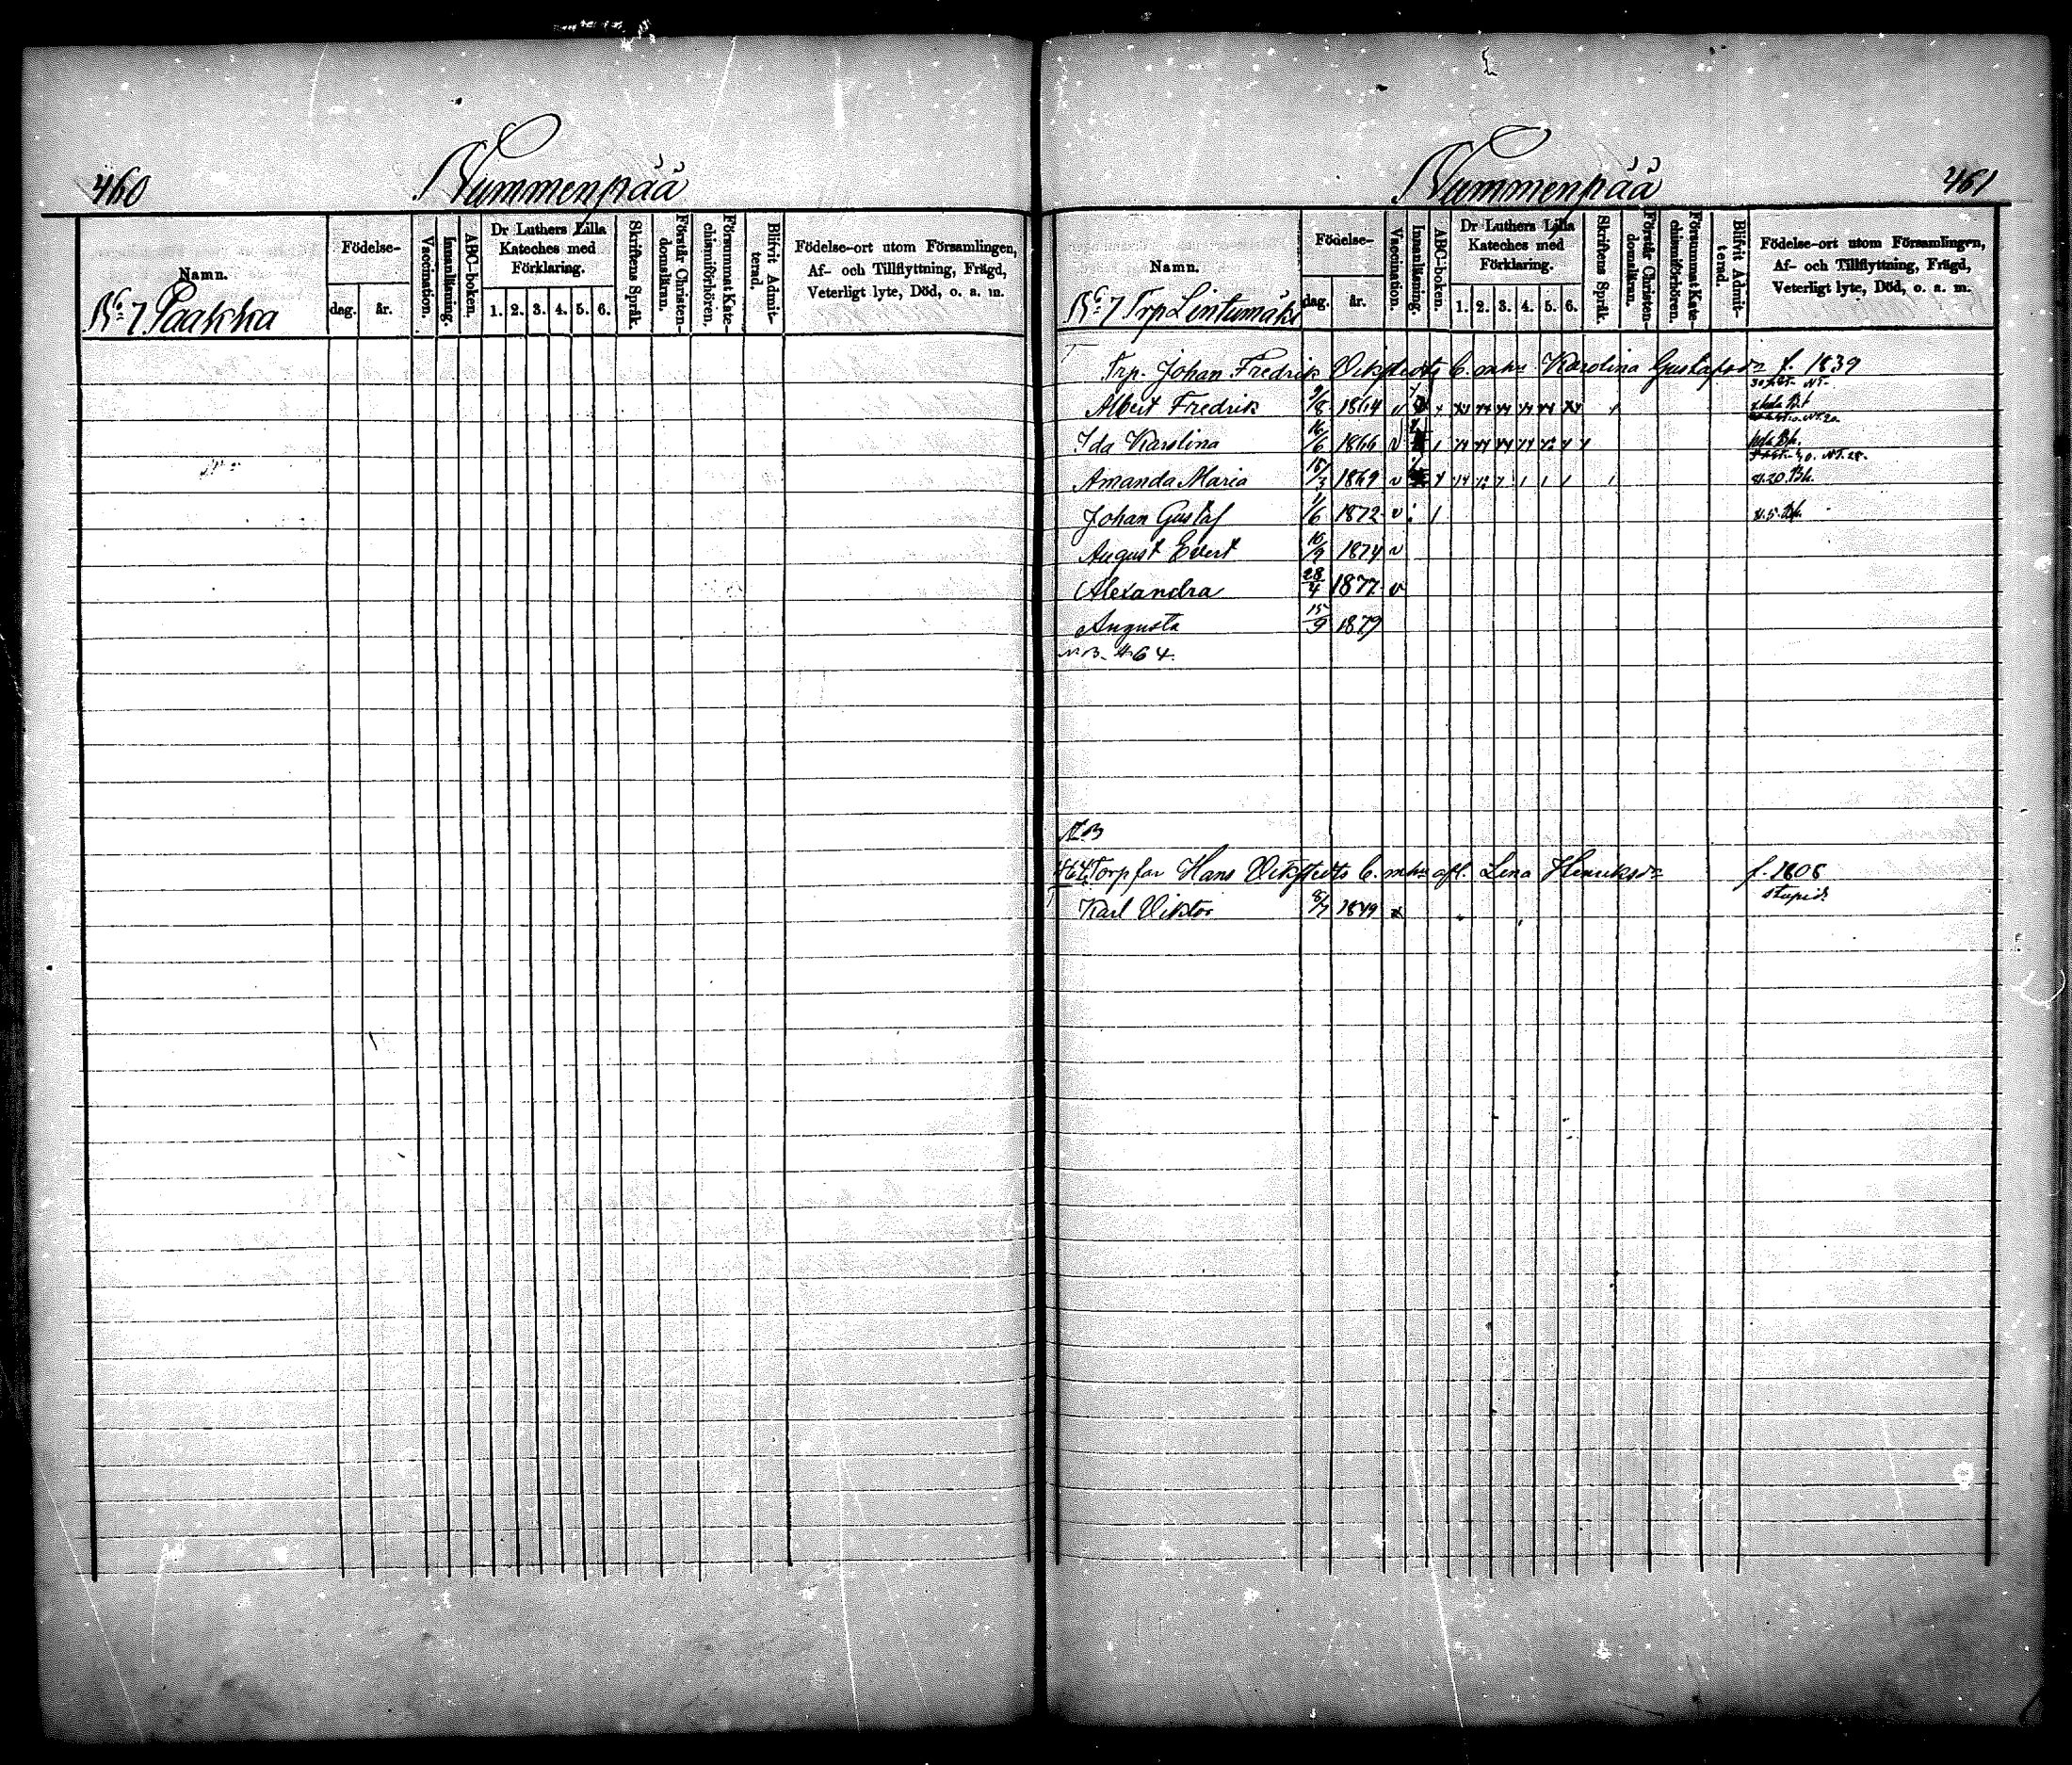 460
Nummenpää
Namn.
No 7 Paakka
Födelse-
dag.
år.
Vaccination.
Innanläsning.
ABC-boken.
Dr Luthers Lilla
Kateches med
Förklaring.
1. 2. 3. 4. 5. 6.
Skriftens Språk.
Förstår Christen-
domsläran.
Försummat Kate-
chismiförhören.
Blifvit Admit-
terad.
Födelse-ort utom Församlingen,
Af- och Tillflyttning, Frägd,
Veterligt lyte, Död, o. a. m.
Nummenpää
461
Namn.
No 7 Trp Lintumäki
Födelse-
dag.
år.
Vaccination.
Innanläsning.
ABC-boken.
Dr Luthers Lilla
Kateches med
Förklaring.
1. 2. 3. 4. 5. 6.
Skriftens Språk.
Förstår Christen-
domsläran.
Försummat Kate-
chismiförhören.
Blifvit Admit-
terad.
Födelse-ort utom Församlingen,
Af- och Tillflyttning, Frägd,
Veterligt lyte, Död, o. a. m.
Trp. Johan Fredrik Vikstedts b. m. hu Karolina Gustafsdr f. 1839
Albert Fredrik 9/8 1864 v
Ida Karolina 16/6 1866 v
Amanda Maria 15/3 1869 v
Johan Gustaf 1/6 1872 v
August Evert 10/9 1874 v
Alexandra 28/4 1877 v
Augusta 15/9 1879
N.B. 464
NB
464 Torpfar Hans Vikstedts b. m. hu afl. Lena Henriksdr f. 1808
Karl Viktor 8/7 1849 x stupid